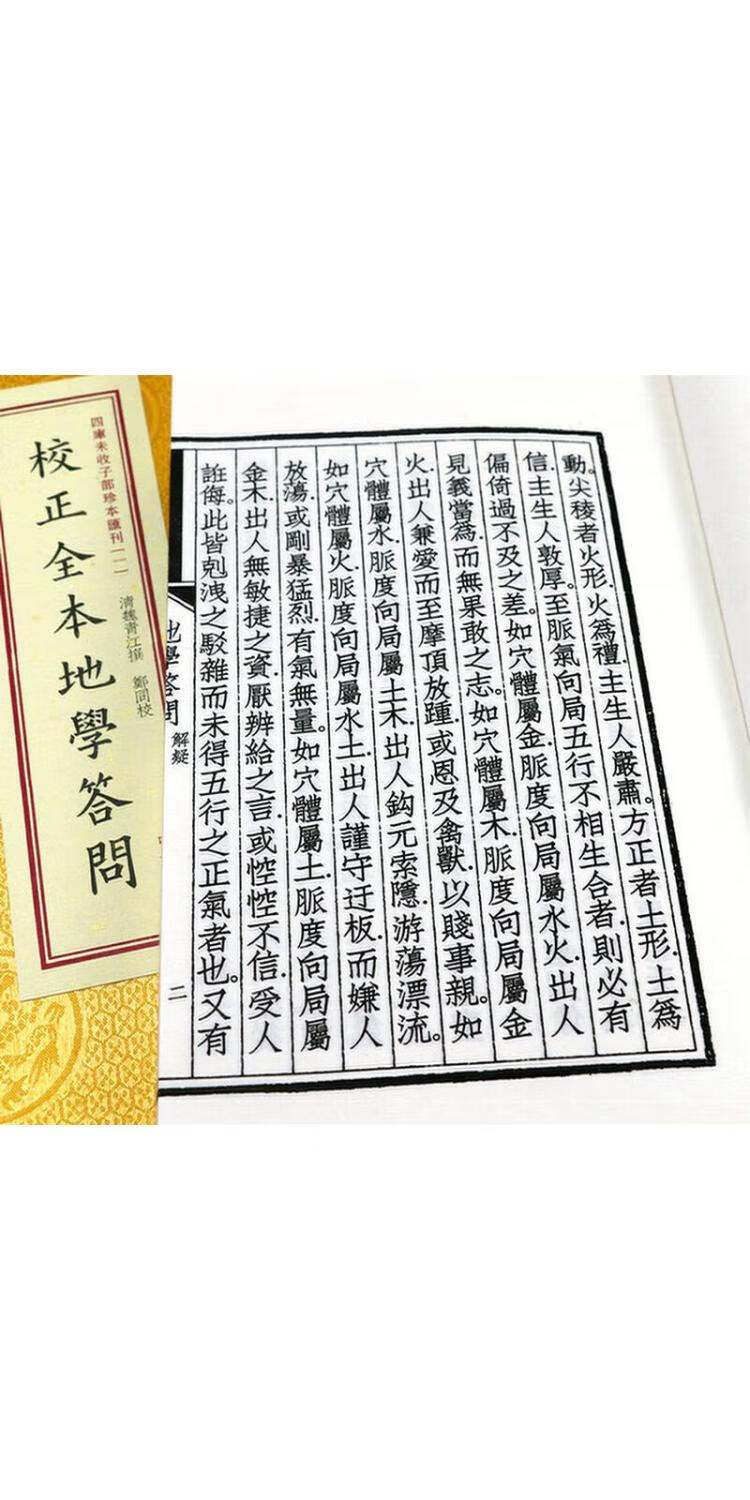 四庫未收子部珍本匯刊(一一)
校正全本地學答問
清魏青江撰 鄭同校
動。尖稜者火形.火爲禮.主生人嚴肅。方正者土形.土爲
信.主生人敦厚。至脈氣向局五行不相生合者.則必有
偏倚過不及之差。如穴體屬金.脈度向局屬水火.出人
見義當爲.而無果敢之志。如穴體屬木.脈度向局屬金
火.出人兼愛而至摩頂放踵.或恩及禽獸.以賤事親。如
穴體屬水.脈度向局屬土木.出人鈎元索隱.游蕩漂流。
如穴體屬火.脈度向局屬水土.出人謹守迂板.而嫌人
放蕩.或剛暴猛烈.有氣無量。如穴體屬土.脈度向局屬
金木.出人無敏捷之資.厭辨給之言.或悾悾不信.受人
誑侮。此皆剋洩之駁雜而未得五行之正氣者也。又有
地學答問
解疑
二